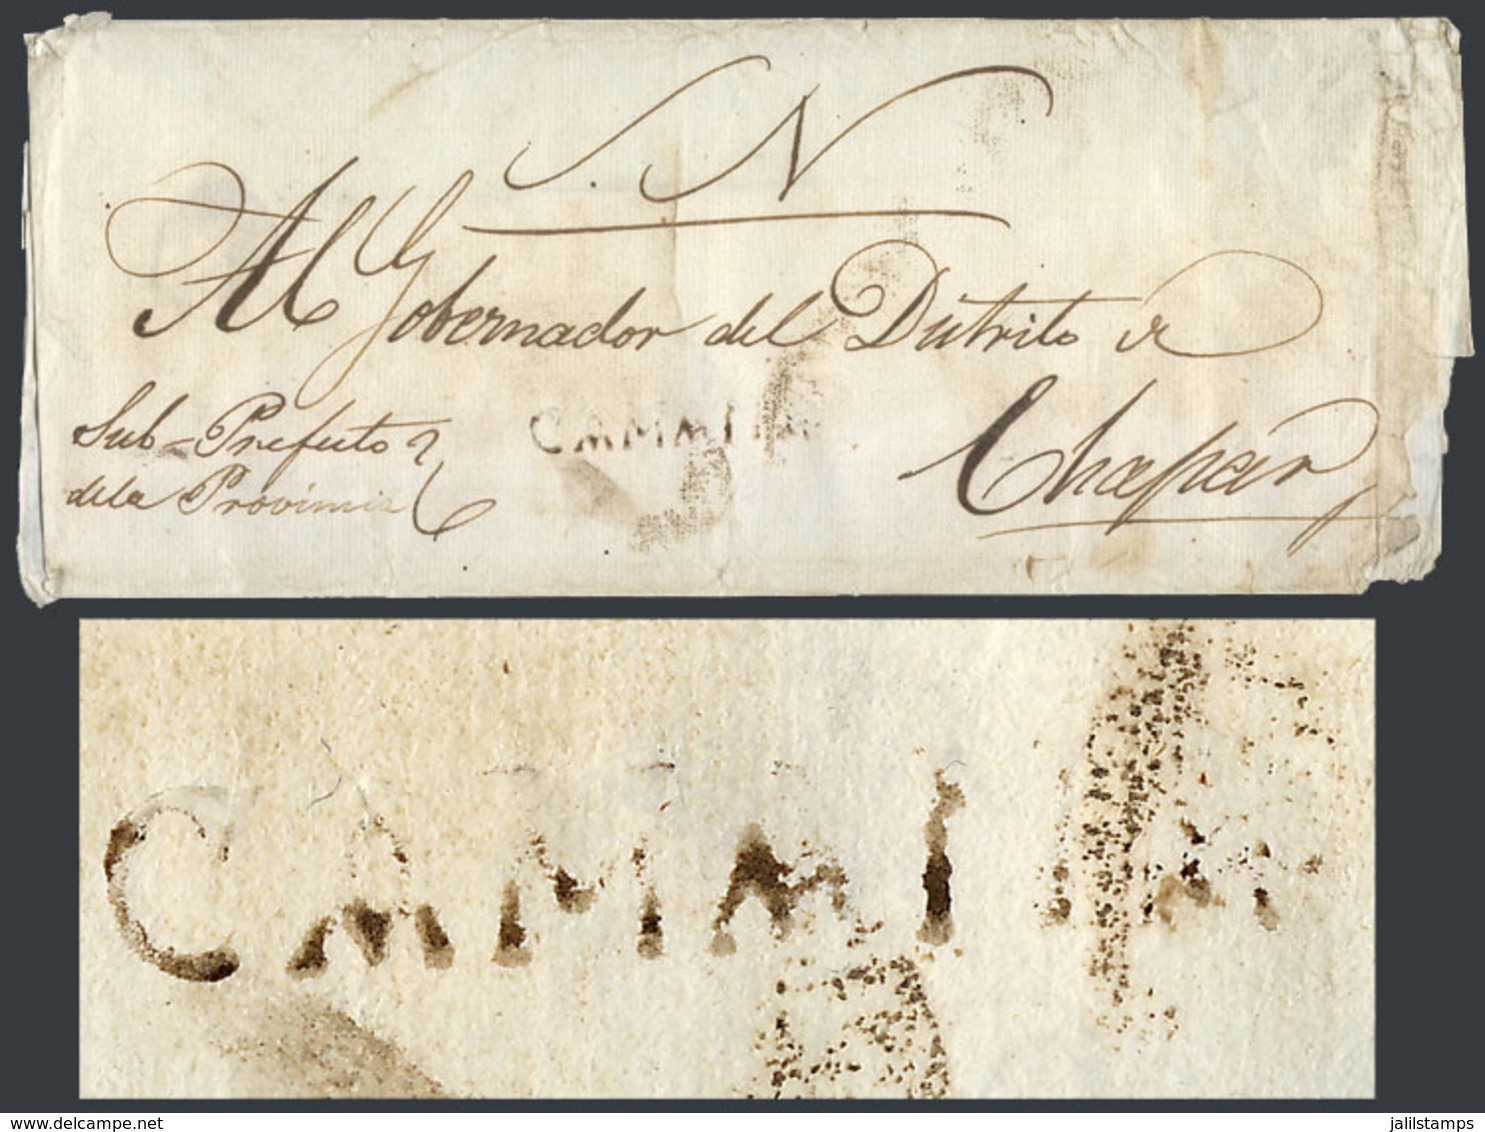 S. N
Al Gobernador del Distrito de
Sub-Prefecto
de la Provincia
Chapar
CAMMI
CAMMI
www.delcampe.net
jalilstamps